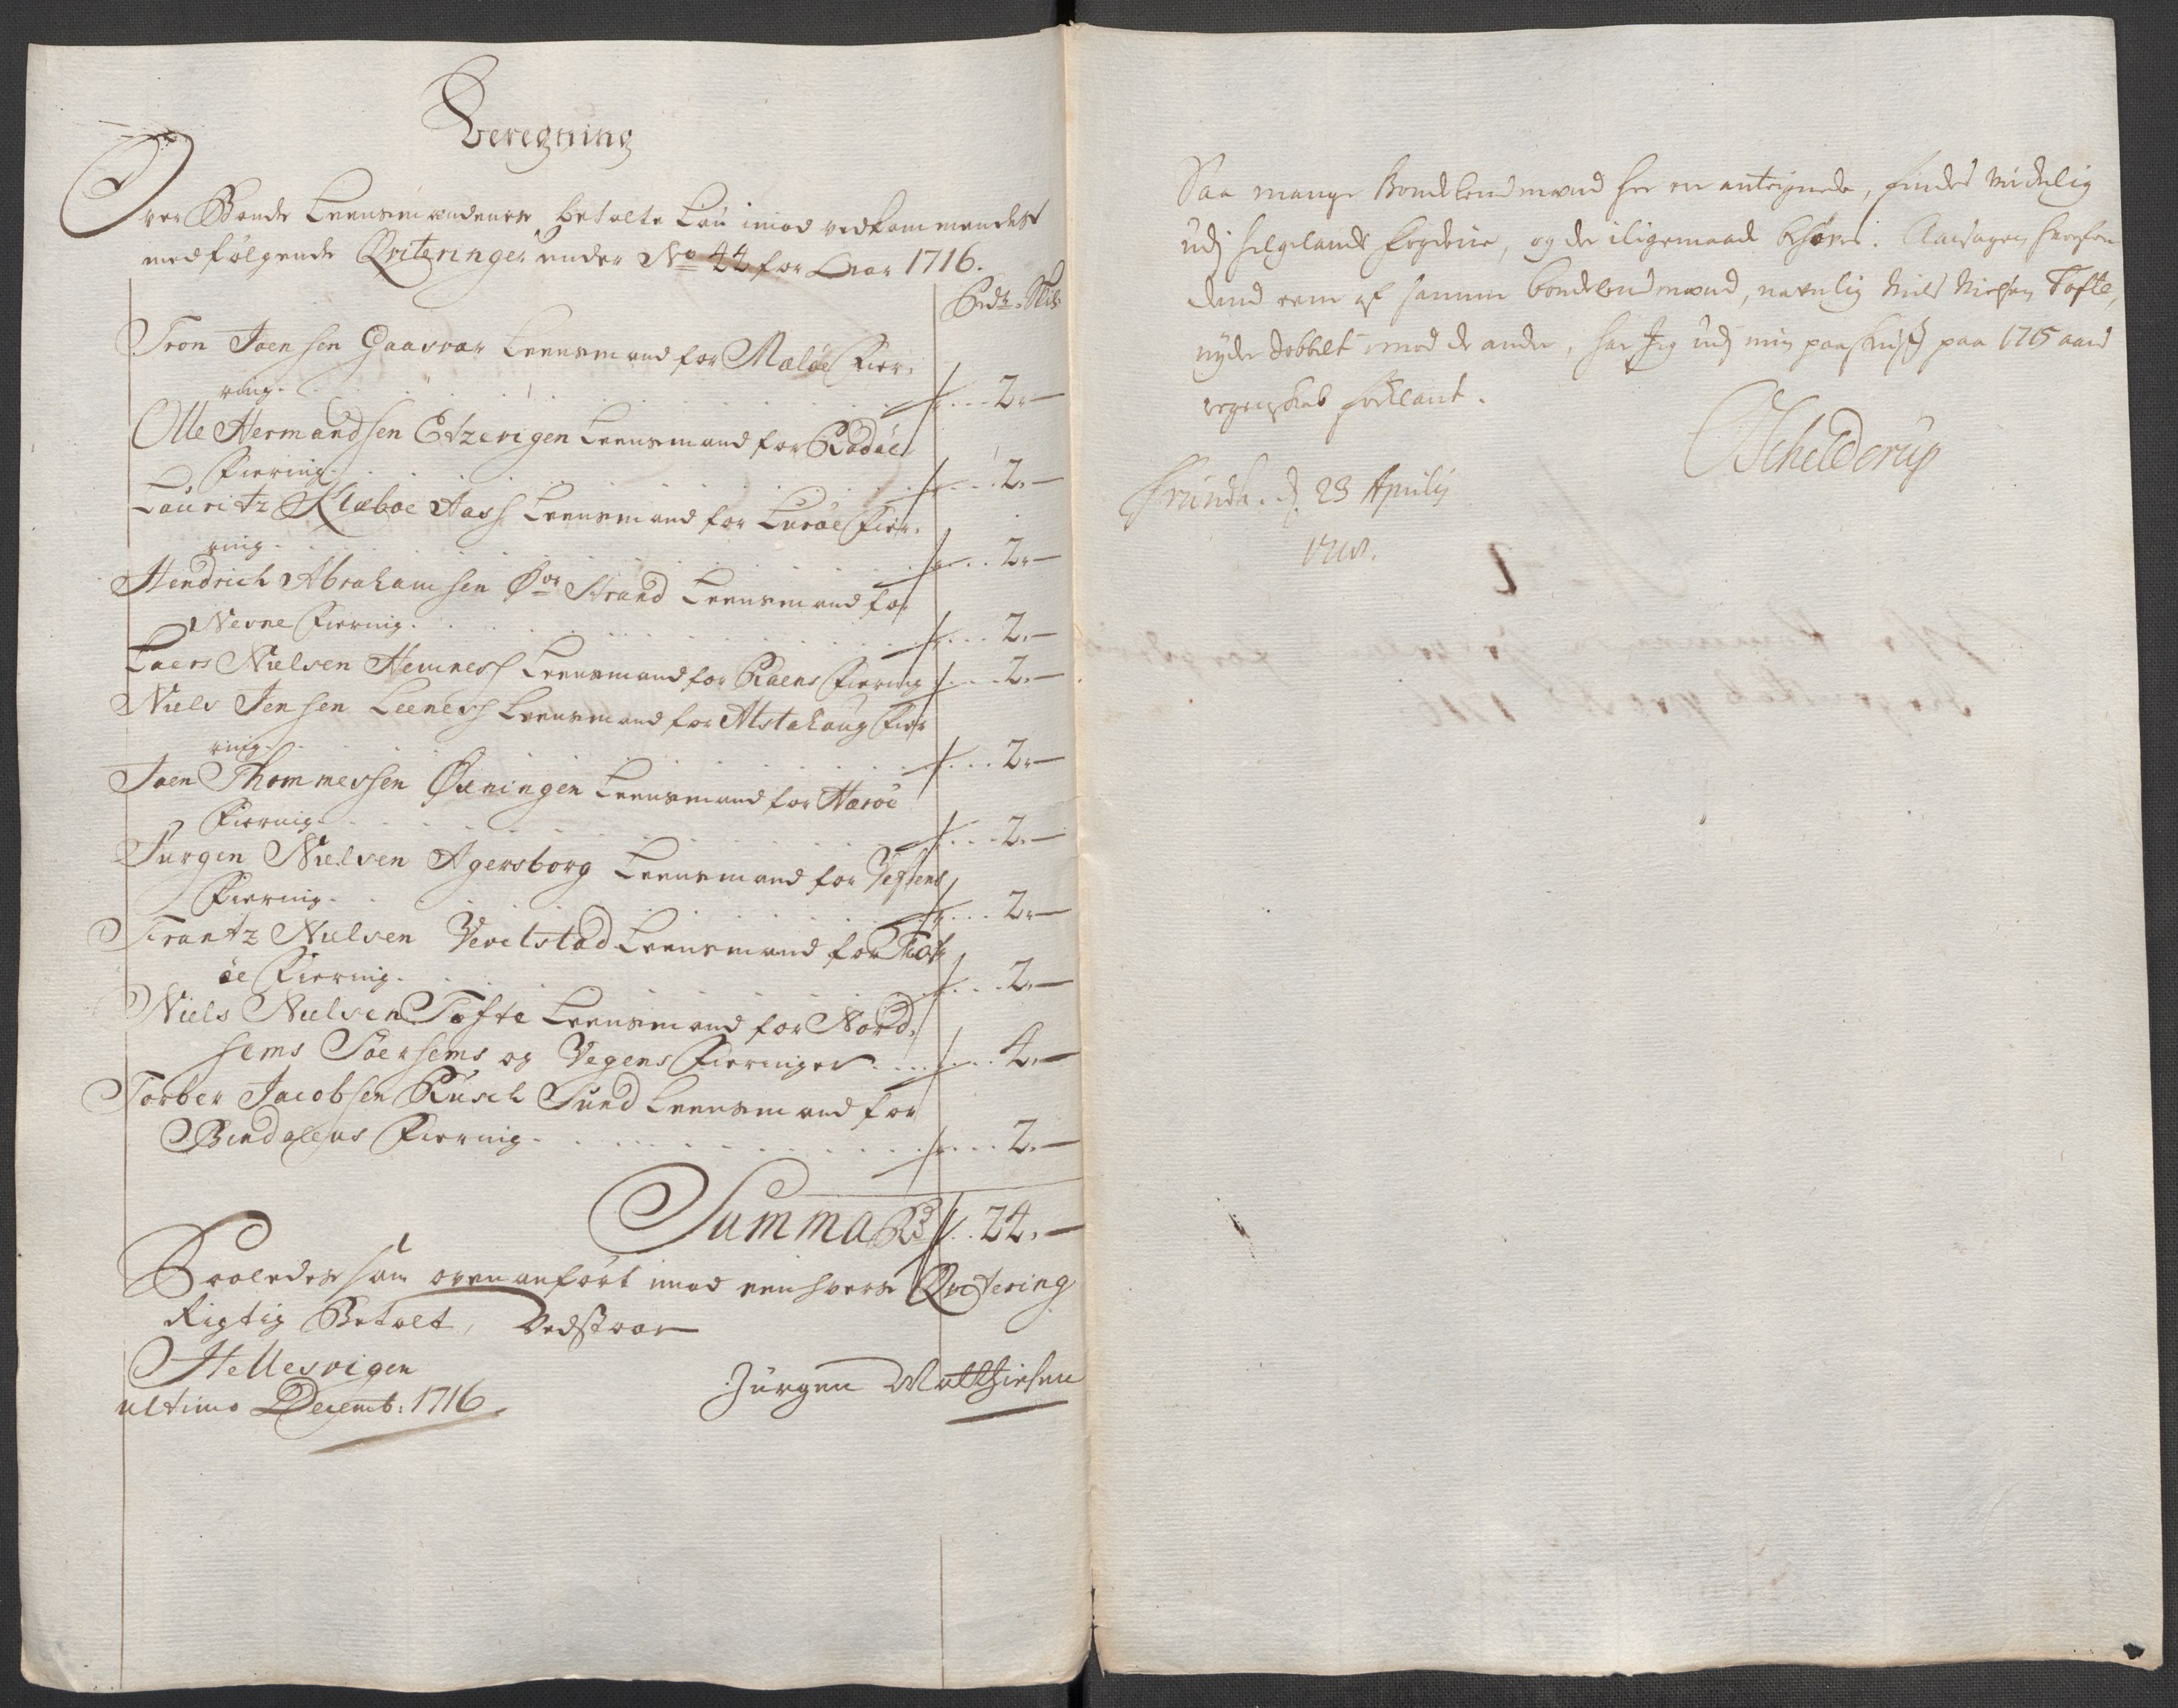 Beregning
Over Bonde Leensmændenes betalte Løn imod vedkommendes
medfølgende Qviteringer under No 44 for Aar 1716.
Rdr. Skil
Tron Joensen Gaasvær Leensmand for Meløe Fier-
ring . . . 2. —
Olle Hermandsen Etzerigen Leensmand for Rødøe
Fiering . . . 2. —
Lauritz Klæboe Aass Leensmand for Lurøe Fier-
ring . . . 2. —
Hendrich Abrahamsen Øv. Strand Leensmand for
Nesne Fiering . . . 2. —
Laers Nielsen Hemness Leensmand for Raens Fiering . . . 2. —
Niels Jensen Leeness Leensmand for Alstahaug Fier
ring . . . 2. —
Joen Thommessen Øxningen Leensmand for Herøe
Fiering . . . 2. —
Jürgen Nielsen Agersborg Leensmand for Vefsens
Fiering . . . 2. —
Frantz Nielsen Vevelstad Leensmand for Tiøt-
øe Fiering . . . 2. —
Niels Nielsen Tofte Leensmand for Nord-
hems Søerhems og Vegens Fieringer . . . 4. —
Torber Jacobsen Rusch Sund Leensmand for
Bindalens Fiering . . . 2. —
Summa Rd 24. —
Saaledes som ovenanført imod eenhvers Qvitering
Rigtig Betalt, Vedstaar
Hellesvigen
ultimo Decemb: 1716.
Jürgen Matthiesen
Saa mange Bondelendsmænd her er antegnede, findes virkelig
udj Helgelands Fogderie, og der iligemaade behøves. Aarsagen hvorfor
dend eene af samme bondelendsmænd, navnlig Niels Nielsen Tofte,
nyder dobbelt imod de andre, har Jeg udj min paaskrifft paa 1715 aars
regenskab forklart.
Trundh. d. 23 Aprilij
Schelderup